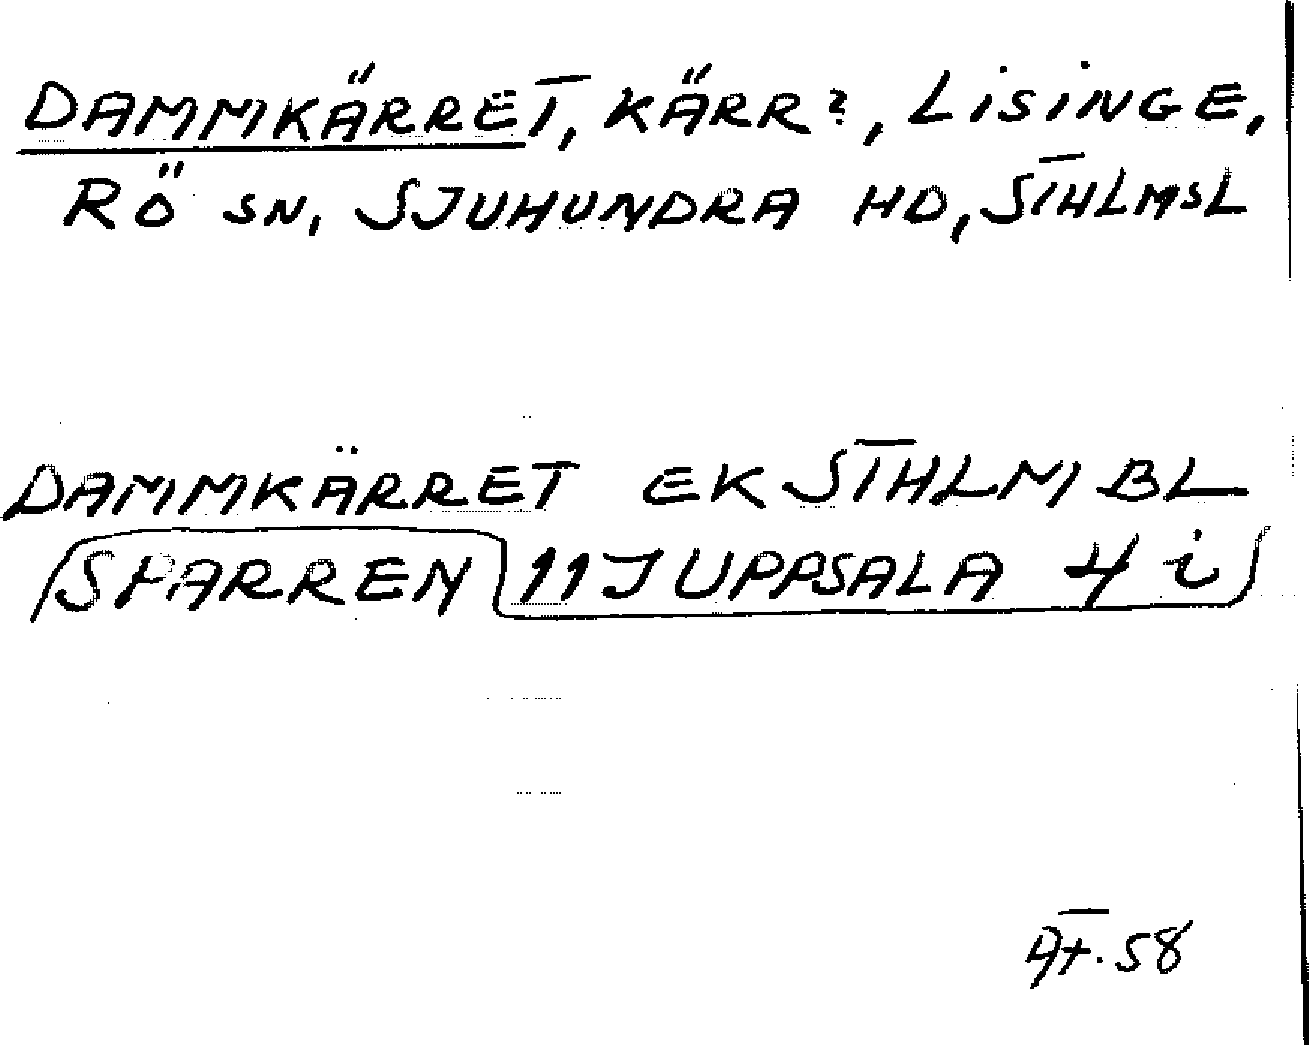 DAMMKÄRRET, KÄRR?, LISINGE,
RÖ SN, SJUHUNDRA HD, STHLMSL
DAMMKÄRRET EK STHLM BL
SPARREN 11J UPPSALA 4 i
58